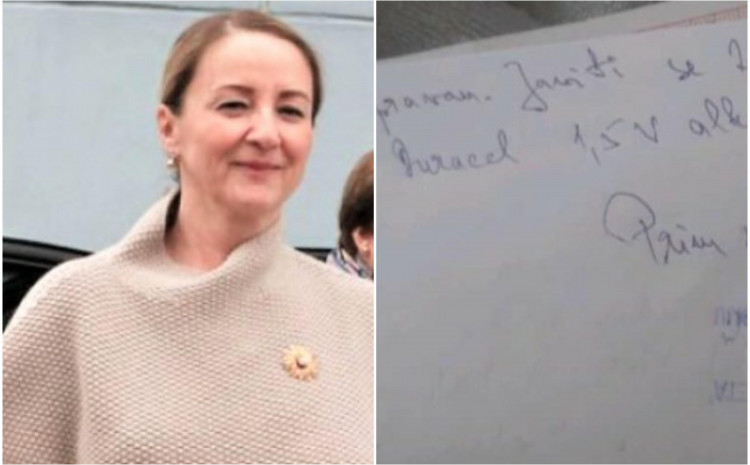 pravan. Javiti se
Duracel 1,5 V alk
Prim